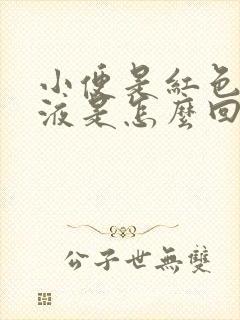 小便是紅色
液是怎麼回
公子世無雙